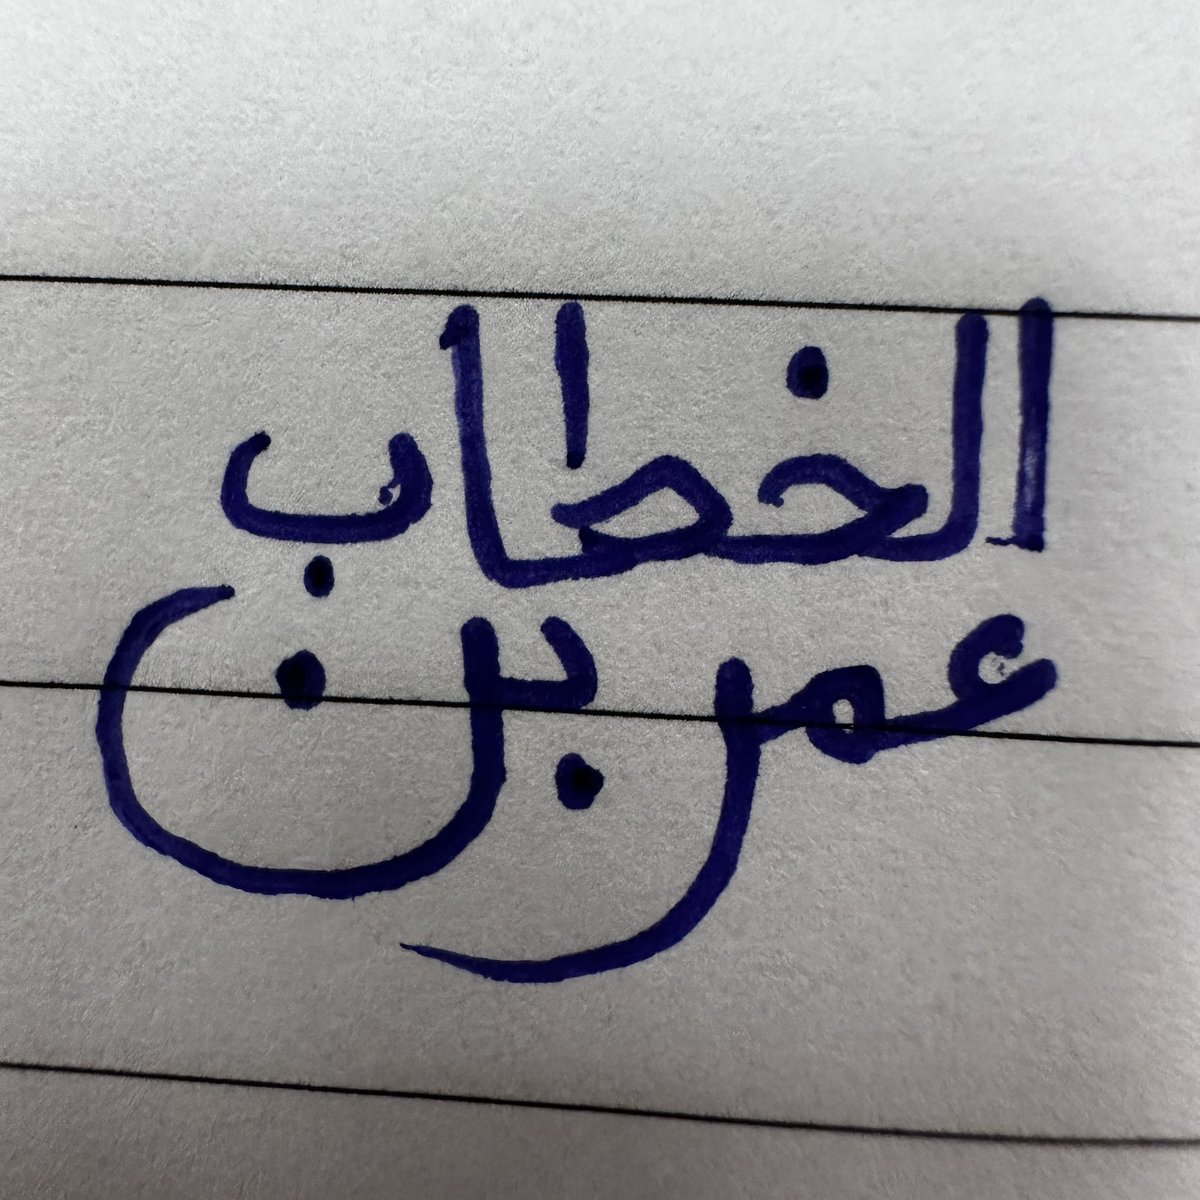 الخطاب
عمر بن